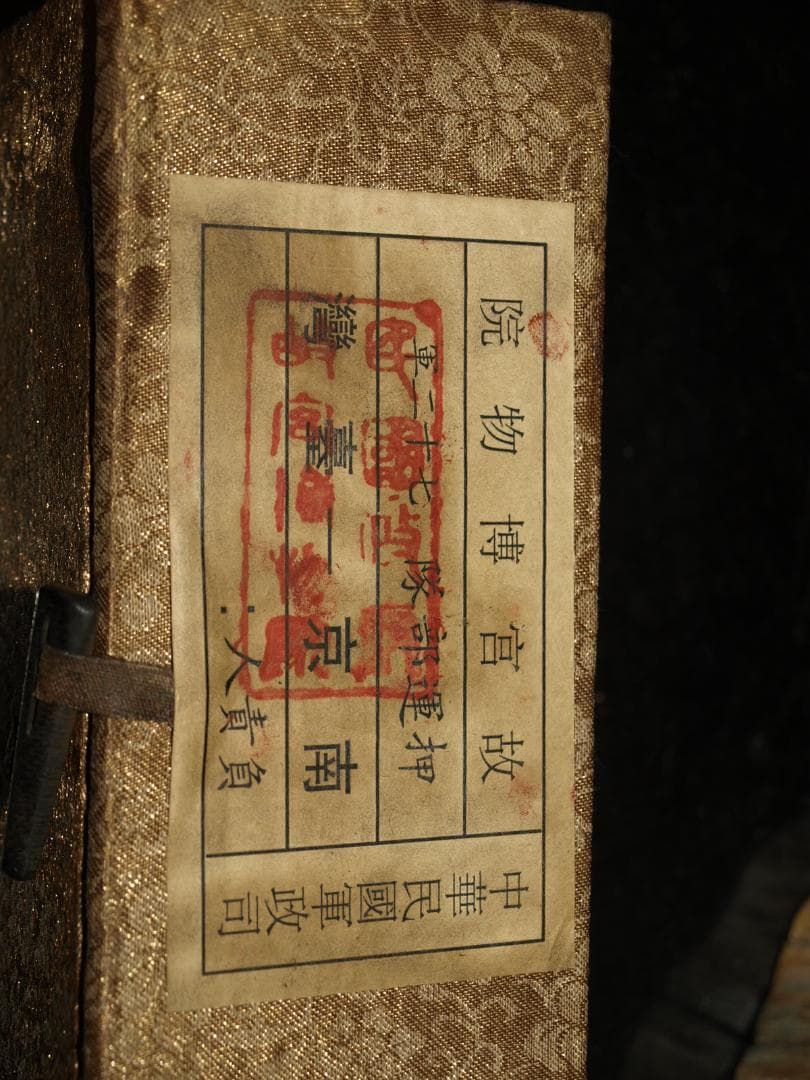 中華民國軍政司
故宮博物院
押運部隊 七十二軍
南京一臺灣
負責人：